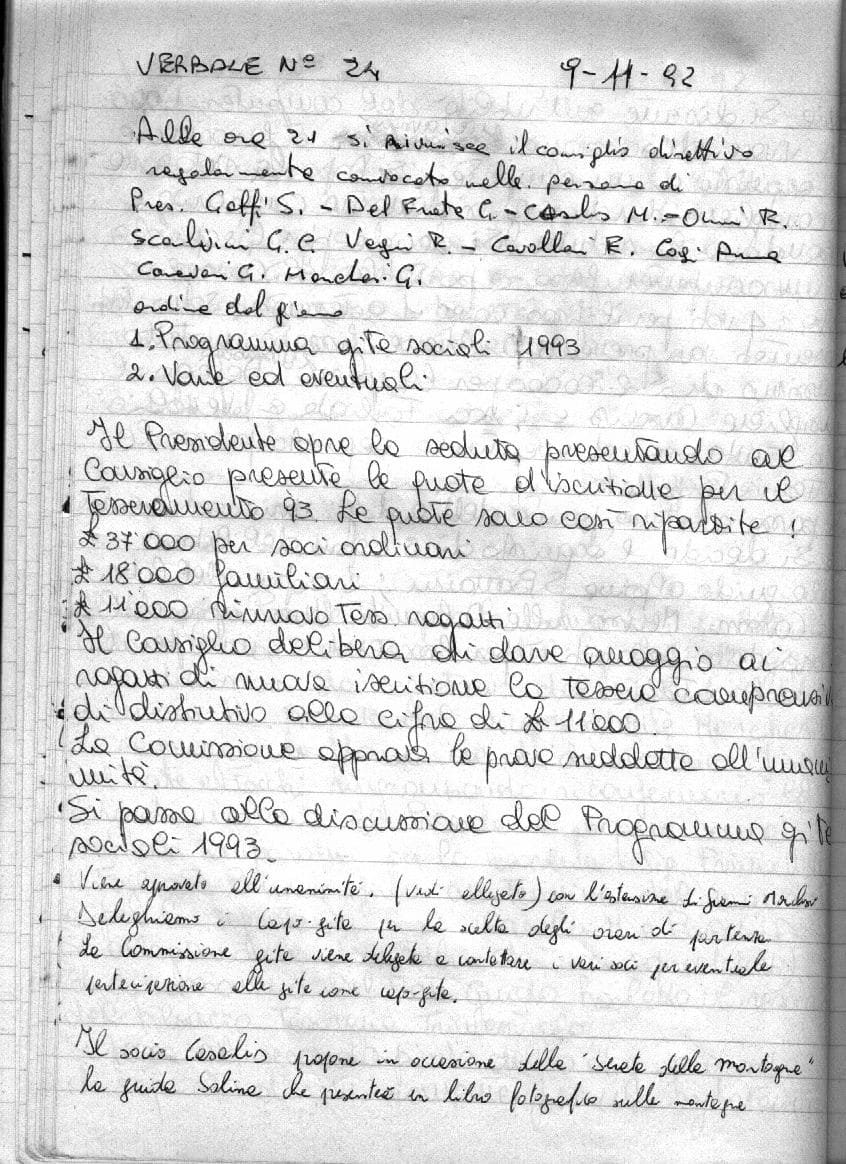 VERBALE Nº 24 9-11-92
Alle ore 21 si riunisce il consiglio direttivo
regolarmente convocato nelle persone di
Pres. Goffi S. - Del Frate G. - Casalis M. - Omni R.
Scalvini G.C. Vegni R. - Cavallari E. Anna
G. G.
ordine del giorno
1. Programma gite sociali 1993
2. Varie ed eventuali
Il Presidente apre la seduta presentando al
Consiglio presente le quote d'iscritione per il
Tesseramento 93. Le quote sono così ripartite:
£ 37'000 per soci ordinari
£ 18'000 familiari
£ 11'000 rinnovo Tess ragatti
Il Consiglio delibera di dare omaggio ai
ragatti di nuova iscritione la Tessera comprensiva
di distintivo alla cifra di £ 11'000.
La Comissione approva le prove suddette all'unani
mità.
Si passa alla discussione del Programma gite
sociali 1993.
Viene aprovato all'unanimità. (vedi allegato) con l'astensione di
Deleghiamo i capo-gite per la scelta degli orari di partenza
La Commissione gite viene delegata a contattare i vari soci per eventuale
partecipazione alle gite come capo-gita.
Il socio Casalis propone in occasione della "Serata della montagna"
la guida Salina che presenta un libro fotografico sulle montagne